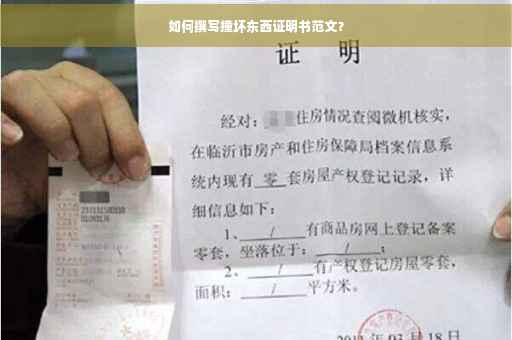 如何撰写撞坏东西证明书范文？
证 明
经对：住房情况查阅微机核实，
在临沂市房产和住房保障局档案信息系
统内现有 零 套房屋产权登记记录，详
细信息如下：
1、 / 有商品房网上登记备案
零套，坐落位于： / ；
2、 / 有产权登记房屋零套，
面积： / 平方米。
月18日